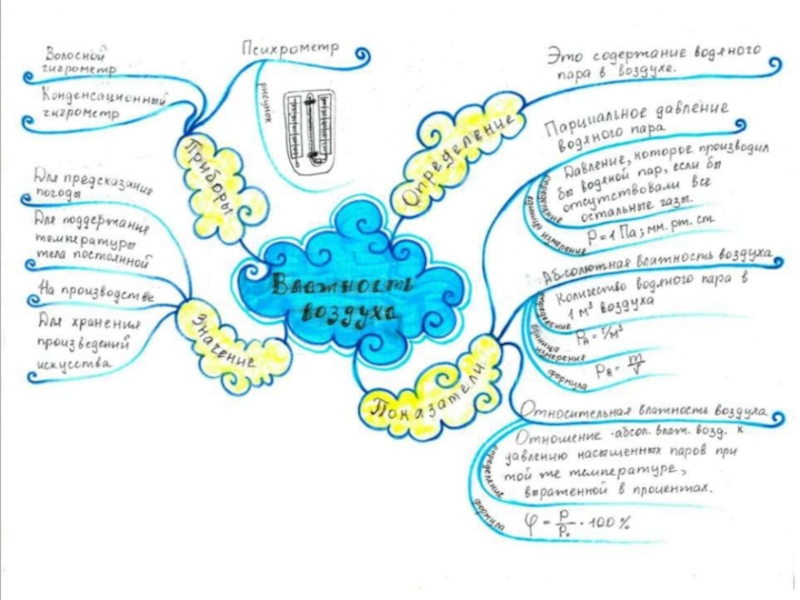 Волосной
гигрометр
Конденсационный
гигрометр
Психрометр
рисунок
Приборы
Определение
Это содержание водяного
пара в воздухе.
Парциальное давление
водяного пара
определение
Давление, которое производил
бы водяной пар, если бы
отсутствовали все
остальные газы.
единица измерения
P = 1 Па; мм. рт. ст.
Для предсказания
погоды
Для поддержания
температуры
тела постоянной
На производстве
Для хранения
произведений
искусства
Значение
Влажность
воздуха
Показатели
Абсолютная влажность воздуха
определение
Количество водяного пара в
1 м³ воздуха
единица
измерения
= г/м³
формула
= m/V
Относительная влажность воздуха
определение
Отношение абсол. влаж. возд. к
давлению насыщенных паров при
той же температуре,
выраженной в процентах.
формула
φ = P/P₀ · 100 %